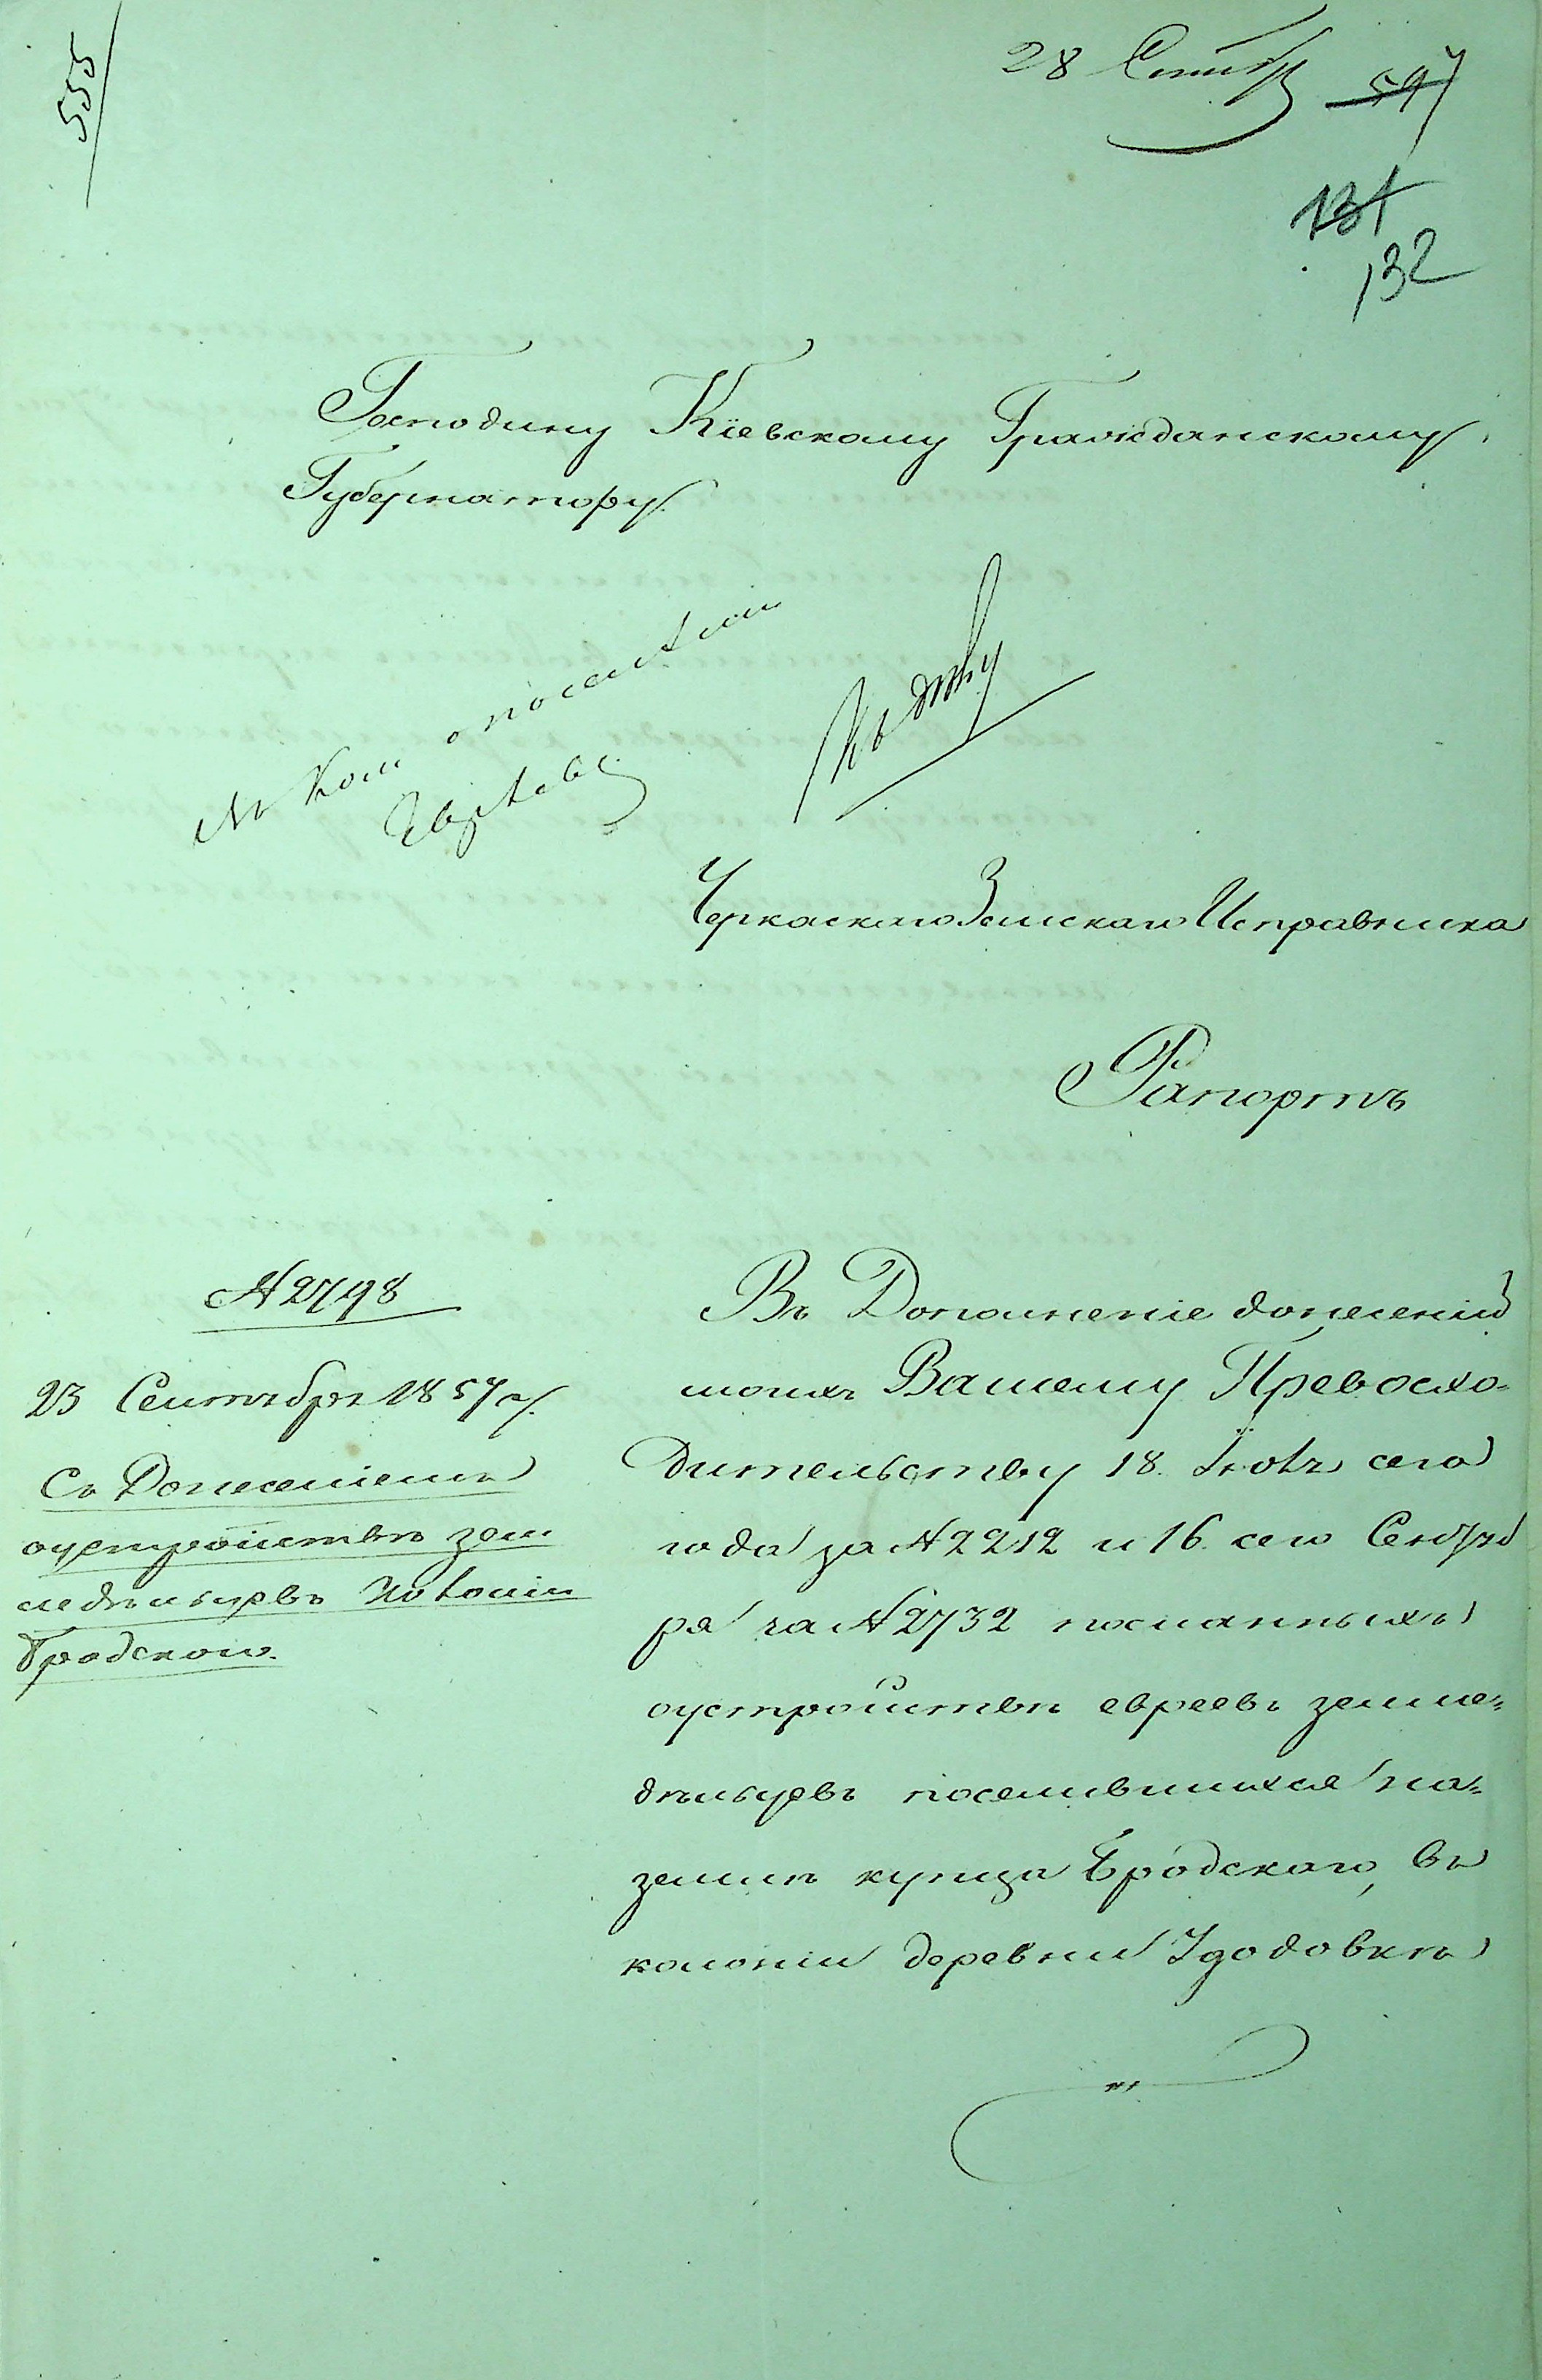 555
28 Сентябр
597
131
132
Господину Кіевскому Гражданскому
Губернатору
Къ дѣлу
о поселеніи
Евреевъ
Черкаскаго Земскаго Исправника
Рапортъ
№ 2798
23 Сентября 1857 г.
Съ Донесеніемъ
оустройствѣ зем
ледѣльцевъ Колоніи
Бродскаго.
Въ Дополненіе донесеній
моихъ Вашему Превосхо-
дительству 18. Іюля сего
года за № 2212 и 16. сего Сентяб
ря за № 2732 посланныхъ
оустройствѣ евреевъ земле-
дѣльцевъ поселившихся на-
землѣ купца Бродскаго, въ
колоніи деревни Удодовкѣ